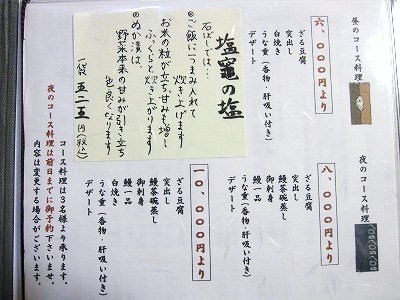 昼のコース料理
六、〇〇〇円より
ざる豆腐
突出し
白焼き
うな重（香物・肝吸い付き）
デザート
塩竈の塩
石ばしでは…
◎ご飯に一つまみ入れて
炊き上げます
お米の粒が立ち甘みも増し
ふっくらと炊き上がります
◎ぬか漬は
野菜本来の甘みが引き立ち
色良くなります
一袋 五二五円（税込）
夜のコース料理
八、〇〇〇円より
ざる豆腐
突出し
鰻茶碗蒸し
御刺身
鰻一品
うな重（香物・肝吸い付き）
デザート
一〇、〇〇〇円より
ざる豆腐
突出し
鰻茶碗蒸し
御刺身
鰻一品
白焼き
うな重（香物・肝吸い付き）
デザート
コース料理は３名様より承ります。
夜のコース料理は前日までに御予約下さいませ。
内容は変更する場合がございます。